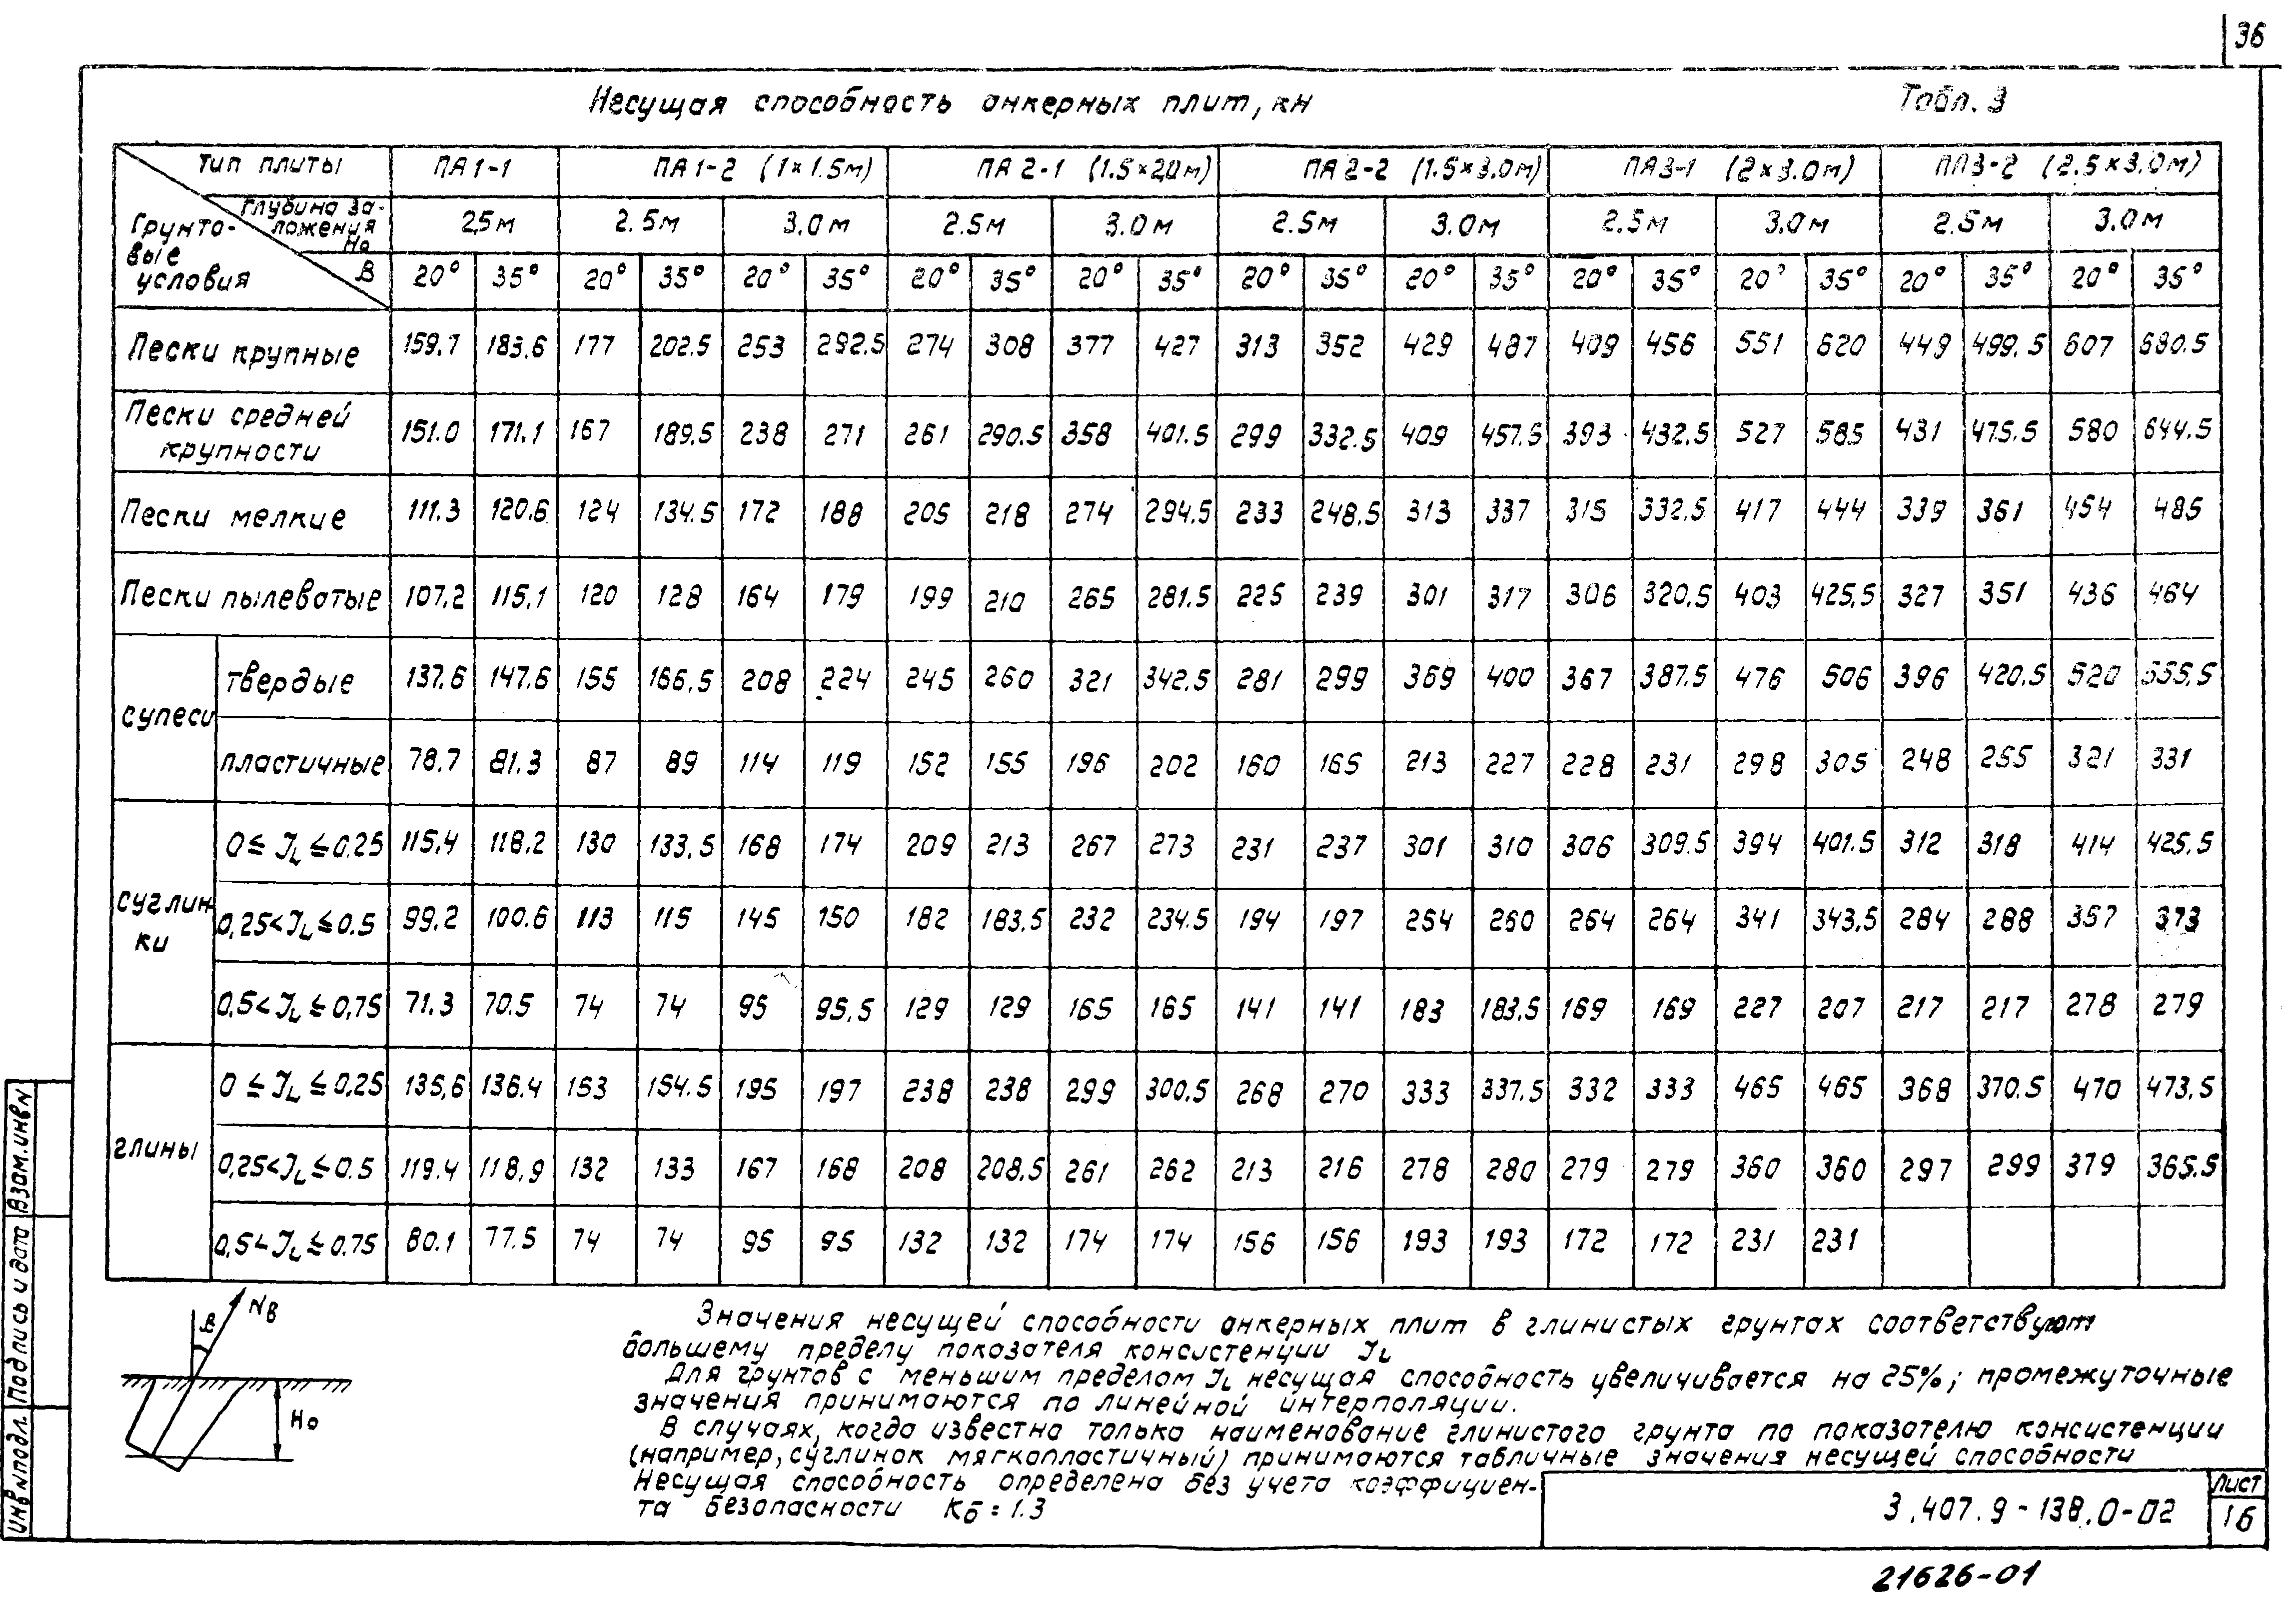 36
Несущая способность анкерных плит, кН
Табл. 3
Тип плиты ПА1-1 ПА1-2 (1×1.5м) ПА2-1 (1.5×2,0м) ПА2-2 (1.5×3.0м) ПА3-1 (2×3.0м) ПА3-2 (2.5×3.0м)
Глубина за-
ложения
Но
2,5м 2.5м 3.0м 2.5м 3.0м 2.5м 3.0м 2.5м 3.0м 2.5м 3.0м
Грунто-
вые
условия
β 20° 35° 20° 35° 20° 35° 20° 35° 20° 35° 20° 35° 20° 35° 20° 35° 20° 35° 20° 35° 20° 35°
Пески крупные 159,7 183,6 177 202.5 253 292.5 274 308 377 427 313 352 429 487 409 456 551 620 449 499.5 607 680.5
Пески средней
крупности
151.0 171.1 167 189.5 238 271 261 290.5 358 401.5 299 332.5 409 457.5 393 432.5 527 585 431 475.5 580 644.5
Пески мелкие 111.3 120.6 124 134.5 172 188 205 218 274 294.5 233 248.5 313 337 315 332.5 417 444 339 361 454 485
Пески пылеватые 107,2 115,1 120 128 164 179 199 210 265 281.5 225 239 301 317 306 320.5 403 425,5 327 351 436 464
супеси
твердые 137.6 147.6 155 166.5 208 224 245 260 321 342.5 281 299 369 400 367 387.5 476 506 396 420.5 520 555,5
пластичные 78,7 81.3 87 89 114 119 152 155 196 202 160 165 213 227 228 231 298 305 248 255 321 331
суглин
ки
0 ≤ JL ≤ 0.25 115,4 118,2 130 133,5 168 174 209 213 267 273 231 237 301 310 306 309.5 394 401.5 312 318 414 425,5
0,25<JL≤0.5 99,2 100.6 113 115 145 150 182 183,5 232 234.5 194 197 254 260 264 264 341 343,5 284 288 357 373
0,5<JL≤0,75 71.3 70.5 74 74 95 95,5 129 129 165 165 141 141 183 183,5 169 169 227 207 217 217 278 279
глины
0 ≤ JL ≤ 0,25 135,6 136.4 153 154.5 195 197 238 238 299 300,5 268 270 333 337,5 332 333 465 465 368 370.5 470 473,5
0,25<JL≤0.5 119.4 118,9 132 133 167 168 208 208,5 261 262 213 216 278 280 279 279 360 360 297 299 379 365.5
0,5<JL≤0.75 80.1 77.5 74 74 95 95 132 132 174 174 156 156 193 193 172 172 231 231
β
Nв
Но
Значения несущей способности анкерных плит в глинистых грунтах соответствуют
большему пределу показателя консистенции JL
Для грунтов с меньшим пределом JL несущая способность увеличивается на 25%; промежуточные
значения принимаются по линейной интерполяции.
В случаях, когда известно только наименование глинистого грунта по показателю консистенции
(например, суглинок мягкопластичный) принимаются табличные значения несущей способности
Несущая способность определена без учета коэффициен-
та безопасности Кб = 1.3
3.407.9-138.0-02
Лист
16
21626-01
Инв№подл. Подпись и дата Взам.инв№